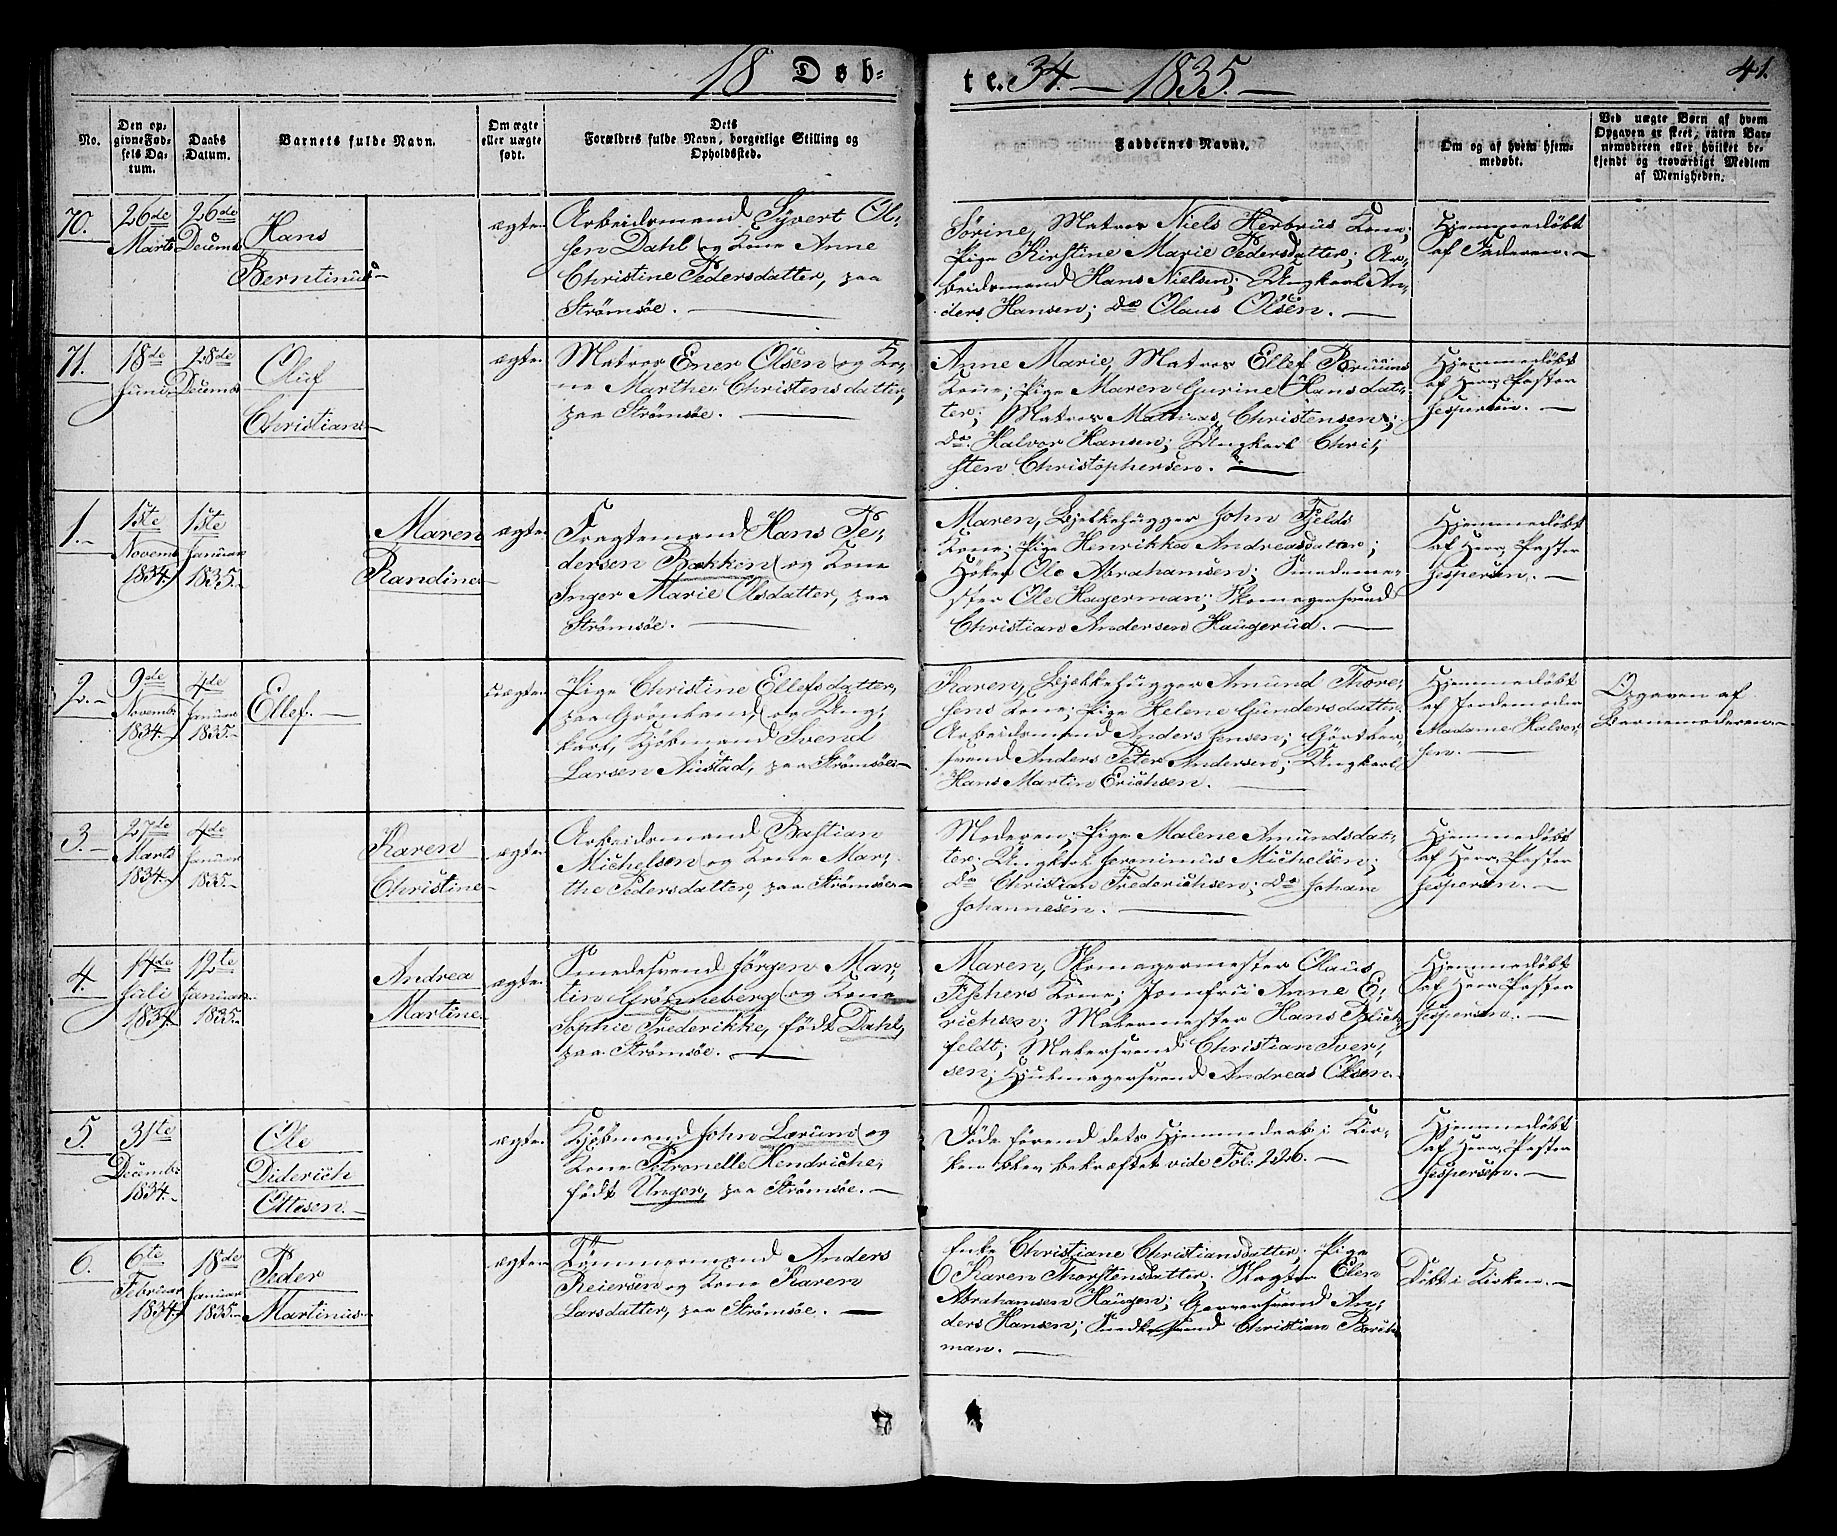 18 Døb-
te. 34. — 1835. —
41.
No.
Den op-
givne Fød-
sels Da-
tum.
Daabs
Datum.
Barnets fulde Navn.
Om ægte
eller uægte
født.
Dets
Forældres fulde Navn, borgerlige Stilling og
Opholdsted.
Faddernes Navne.
Om og af hvem hjem-
medøbt.
Ved uægte Børn af hvem
Opgaven er skeet, enten Bar-
nemoderen eller hvilket be-
kjendt og troværdigt Medlem
af Menigheden.
70.
26de
Marts
26de
Decemb.
Hans
Berntinus
ægte
Arbeidsmand Syvert Ol-
sen Dahl og Kone Anne
Christine Pedersdatter, paa
Strømsøe. —
Sørine, Matros Niels Herbrus Kone;
Pige Kirstine Marie Pedersdatter; Ar-
beidsmand Hans Nielsen; Ungkarl An-
ders Hansen; do Olaus Olsen. —
Hjemmedøbt
af Faderen. —
71.
18de
Juni
28de
Decemb.
Oluf
Christian
ægte
Matros Ener Olsen og Ko-
ne Marthe Christensdatter,
paa Strømsøe. —
Anne Marie, Matros Ellef Bruuns
Kone; Pige Maren Gurine Hansdat-
ter; Matros Mathias Christensen;
do. Halvor Hansen; Ungkarl Chri-
sten Christophersen. —
Hjemmedøbt
af Herr Pastor
Jespersen. —
1.
1ste
Novemb.
1834
1ste
Januar
1835
Maren
Randine
ægte
Fragtemand Hans Pe-
dersen Bakken og Kone
Inger Marie Olsdatter, paa
Strømsøe. —
Maren, Bjelkehugger John Fjelds
Kone; Pige Henrikka Andreasdatter;
Høker Ole Abrahamsen; Smedeme-
ster Ole Hagerman; Skomagersvend
Christian Andersen Haugerud. —
Hjemmedøbt
af Herr Pastor
Jespersen. —
2.
9de
Novemb.
1834.
4de
Januar
1835
Ellef.
uægte
Pige Christine Ellefsdatter,
paa Grønland, og Ung-
karl, Kjøbmand Svend
Larsen Austad, paa Strømsøe
Karen, Bjelkehugger Amund Thore-
sens Kone; Pige Helene Gundersdatter,
Arbeidsmand Anders Jensen; Gørtler-
svend Anders Peter Andersen; Ungkarl
Hans Martin Erichsen.
Hjemmedøbt
af Jordemoder
Madame Halvor-
sen. —
Opgaven af
Barnemoderen. —
3.
27de
Marts
1834
4de
Januar
1835
Karen
Christine
ægte
Arbeidsmand Bastian
Michelsen og Kone Mar-
the Pedersdatter, paa Strømsøe
Moderen; Pige Malene Amundsdat-
ter; Ungkarl Jeronimus Michelsen;
do. Christian Frederichsen; do Johan
Johannesen. —
Hjemmedøbt
af Herr Pastor
Jespersen. —
4.
14de
Juli
1834
12te
Januar
1835
Andrea
Martine
ægte
Smedesvend Jørgen Mar-
tin Grønneberg og Kone
Sophie Frederikke, født Dahl,
paa Strømsøe. —
Maren, Skomagermester Olaus
Fischers Kone; Jomfru Anne E-
richsen; Malermester Hans Blich-
feldt; Malersvend Christian Iver-
sen; Hjulmagersvend Andreas Olsen.
Hjemmedøbt
af Herr Pastor
Jespersen. —
5.
31te
Decemb.
1834.
Ole
Diderich
Ottesen
ægte
Kjøbmand John Lærum og
Kone Petronelle Hendriche,
født Unger, paa Strømsøe. —
Døde førend dets Hjemmedaab i Kir-
ken blev bekræftet vide Fol: 226. —
Hjemmedøbt
af Herr Pastor
Jespersen. —
6.
6te
Februar
1834
18de
Januar
1835
Peder
Martinus
ægte
Tømmermand Anders
Reiersen og Kone Karen
Larsdatter, paa Strømsøe. —
Enke Christiane Christiansdatter; Pige
Karen Thorstensdatter; Slagter Elen
Abrahamsen Haugen; Garversvend An-
ders Hansen; Snedkersvend Christian
man. —
Døbt i Kirken. —